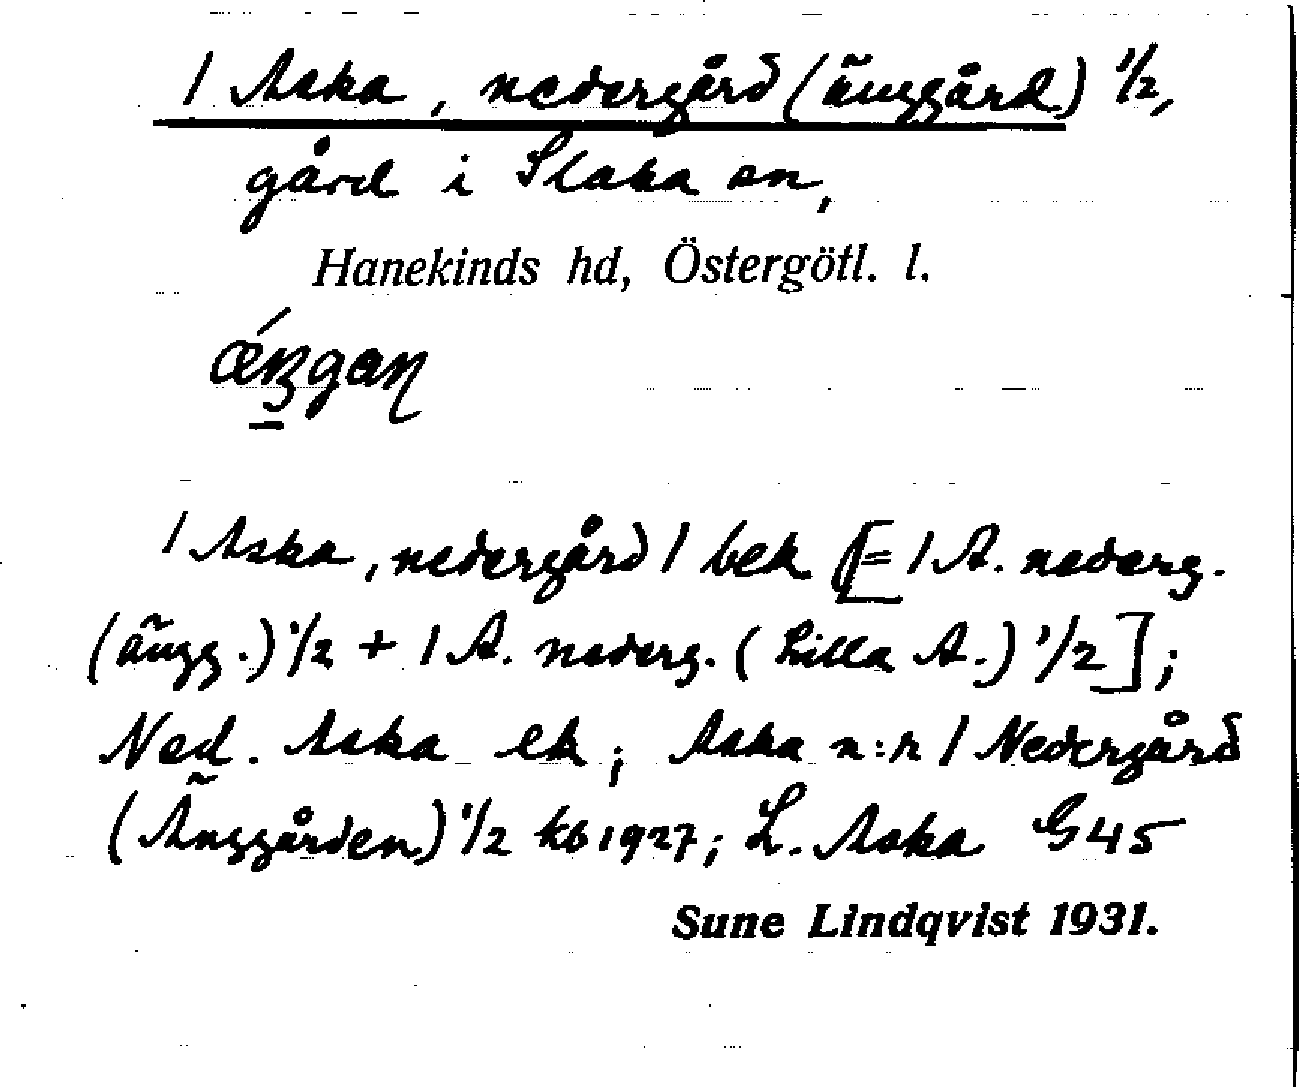 1 Aska, nedergård (änggård) 1/2,
gård i Slaka sn,
Hanekinds hd, Östergötl. l.
1 Aska, nedergård 1 bek [= 1 A. nederg.
(ängg.) 1/2 + 1 A. nederg. (Lilla A.) 1/2];
Ned. Aska ek; Aska n:r 1 Nedergård
(Änggården) 1/2 kb 1927; L. Aska G45
Sune Lindqvist 1931.